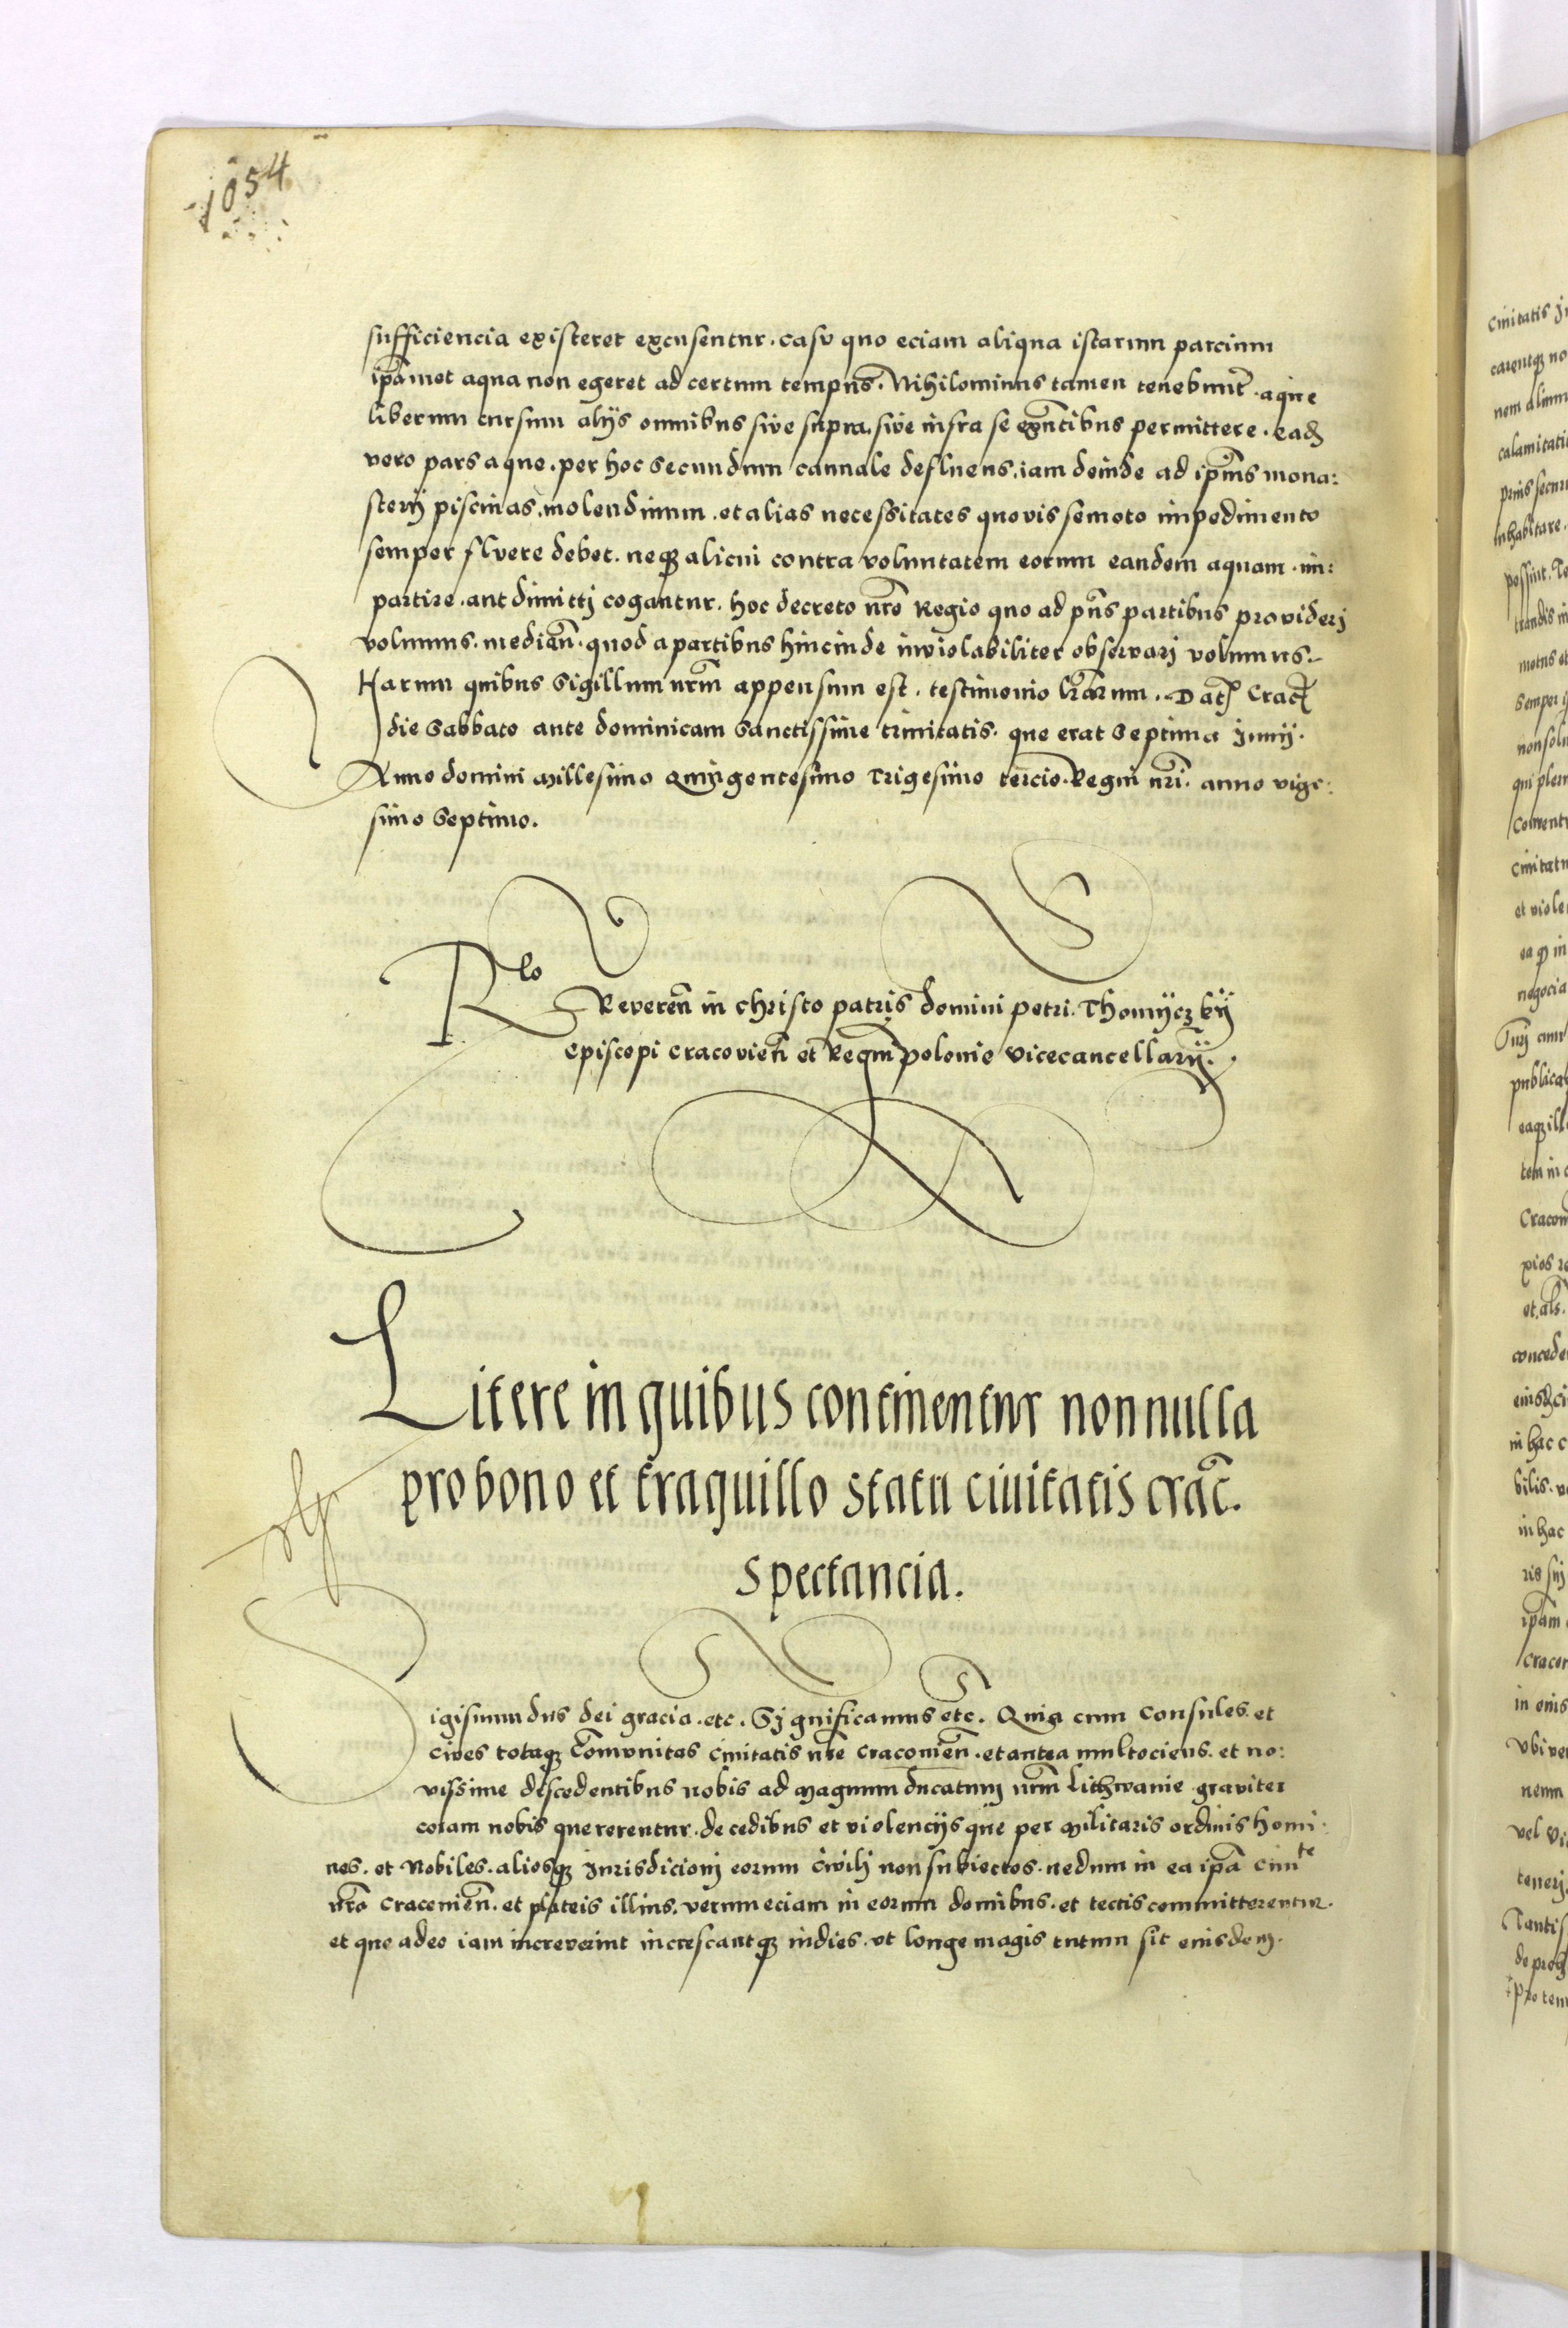 1054
sufficiencia existeret excusentur. casu quo eciam aliqua istarum parcium
ip̄amet aqua non egeret ad certum tempus. Nihilominus tamen tenebunt̄. aque
liberum cursum alijs omnibus siue supra. siue infra se exn̄tibus permittere. ead
vero pars aque. per hoc secundum cannale defluens. iam deinde ad ip̄ius mona:
sterij piscinas. molendinum. et alias necessitates quovis semoto impedimento
semper fluere debet. neqꝫ alicui contra voluntatem eorum eandem aquam. im:
partire. aut dimitti cogantur. hoc decreto nr̄o Regio quo ad pn̄s partibus providerj
volumus. median̄. quod a partibus hincinde inviolabiliter observarj volumus.
Harum quibus sigillum nrm̄ appensum est. testimonio lr̄arum. Dat Crac
die Sabbato ante dominicam Sanctissime trinitatis. que erat septima Junij.
Anno domini Millesimo Quingentesimo Trigesimo tercio. Regni nr̄i. anno vige:
simo septimo.
Rlo
Reveren̄ in christo patris domini petri. Thomyczkij
Episcopi cracovien̄ et Regni polonie vicecancellarij.
Litere in quibus continentur nonnulla
pro bono et traquillo statu ciuitatis crac̄.
spectancia.
Sigismundus dei gracia. etc. Significamus etc. Quia cum Consules. et
cives totaqꝫ Com̄vnitas Ciuitatis nr̄e Cracouien̄. et antea multociens. et no:
vissime discedentibus nobis ad Magnum ducatum nrm̄ Lithwanie graviter
coram nobis quererentur. de cedibus et violencijs que per Militaris ordinis homi:
nes. et Nobiles. aliosqꝫ Jurisdicionj eorum civilj non subiectos. nedum in ea ip̄a Ciuite
nr̄a Cracouien̄. et plateis illius. verum eciam in eorum domibus. et tectis committerentur.
et que adeo iam increverint increscantqꝫ indies. vt longe magis tutum sit eiusdem.